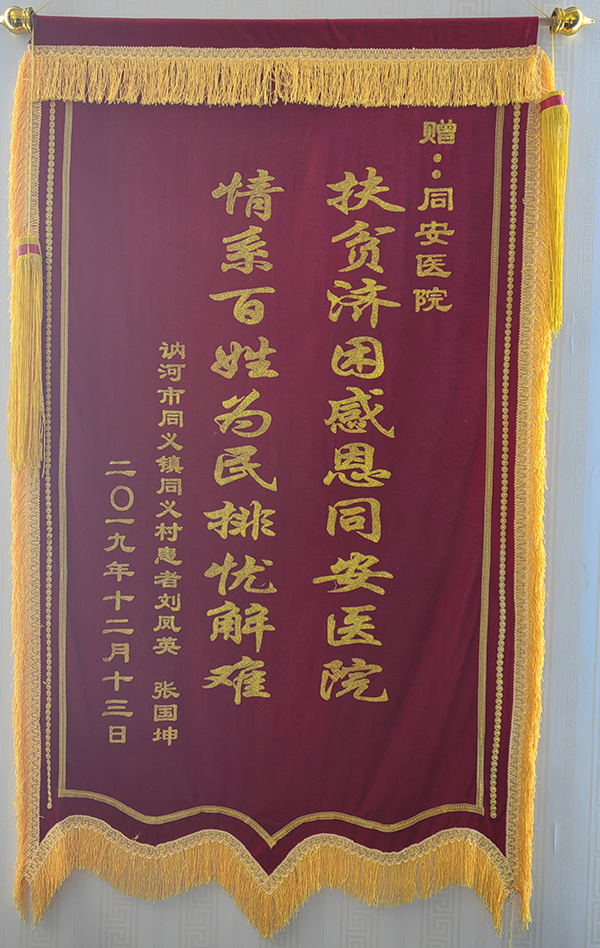 赠：同安医院
扶贫济困感恩同安医院
情系百姓为民排忧解难
讷河市同义镇同义村患者刘凤英 张国坤
二〇一九年十二月十三日